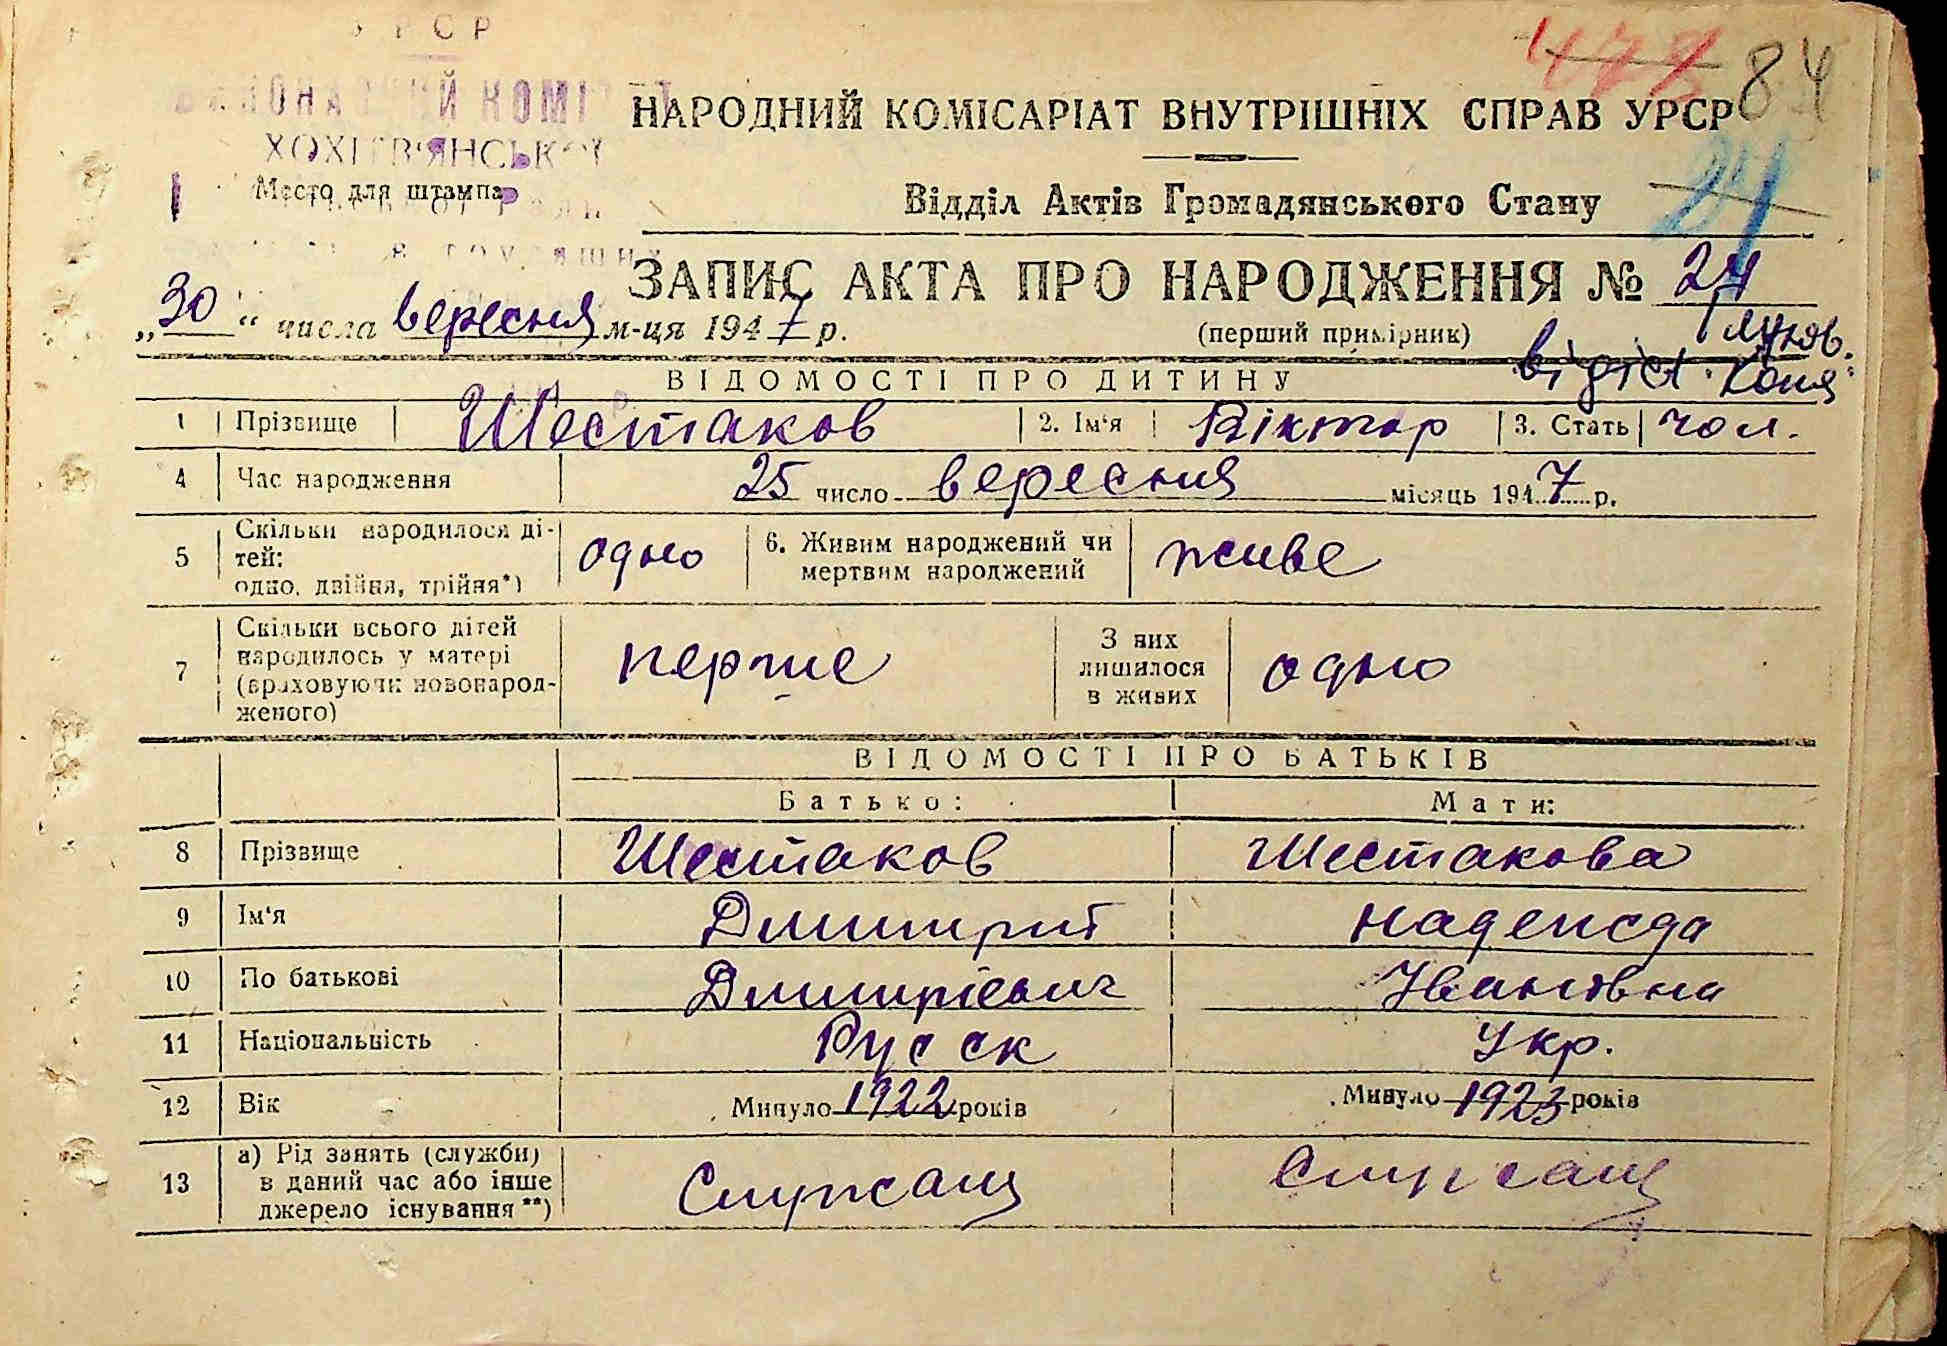 УРСР
ХОХІТВ'ЯНСЬКОЇ
Место для штампа
477 84
НАРОДНИЙ КОМІСАРІАТ ВНУТРІШНІХ СПРАВ УРСР
24
Відділ Актів Громадянського Стану
ЗАПИС АКТА ПРО НАРОДЖЕННЯ № 24
„30“ числа вересня м-ця 1947 р. (перший примірник)
копія
ВІДОМОСТІ ПРО ДИТИНУ
1 Прізвище Шестаков 2. Ім'я Віктор 3. Стать чол.
4 Час народження 25 число вересня місяць 1947 р.
5 Скільки народилося дітей: одно, двійня, трійня*) одно 6. Живим народжений чи мертвим народжений живе
7 Скільки всього дітей народилось у матері (враховуючи новонародженого) перше З них лишилося в живих одно
ВІДОМОСТІ ПРО БАТЬКІВ
Батько: Мати:
8 Прізвище Шестаков Шестакова
9 Ім'я Дмитрий Надежда
10 По батькові Дмитрієвич Івановна
11 Національність Русск Укр.
12 Вік Минуло 1922 років Минуло 1923 років
13 а) Рід занять (служби) в даний час або інше джерело існування**) Служащ Служащ